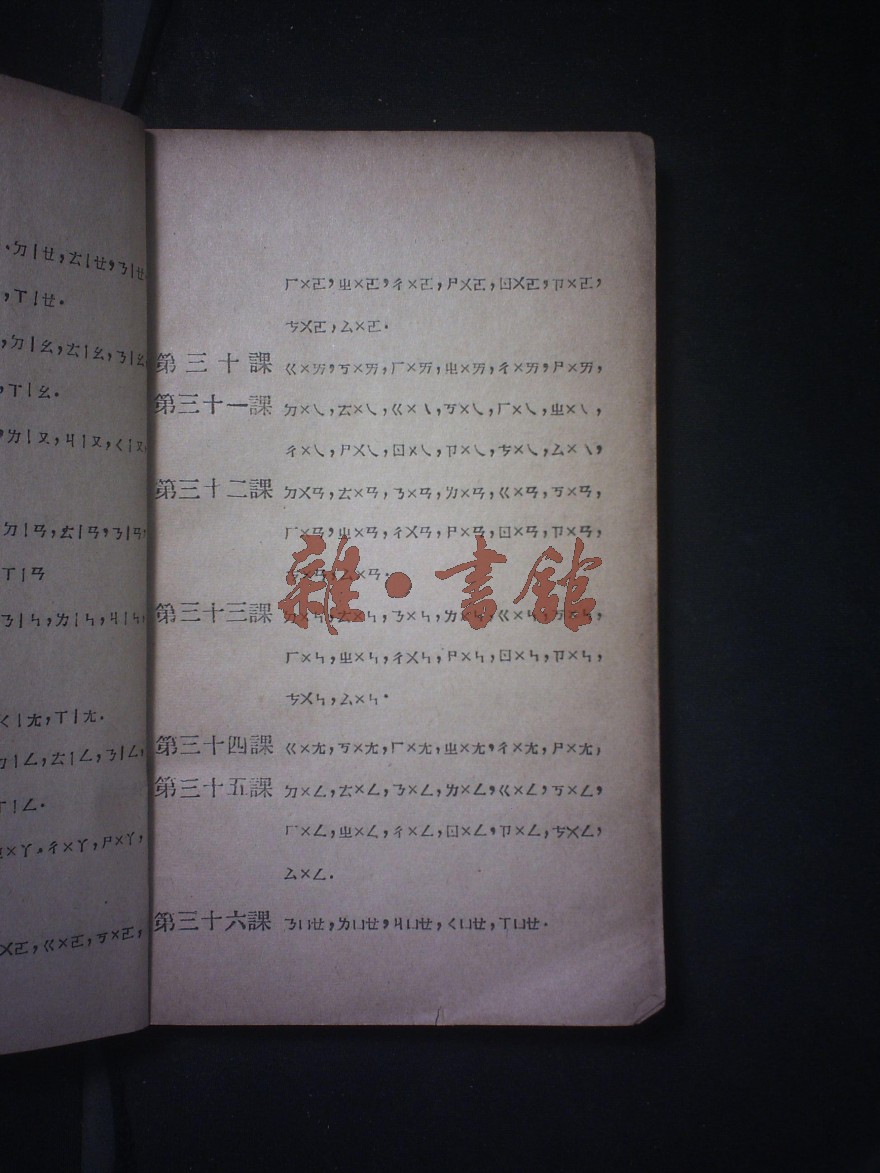 .ㄉㄧㄝ,ㄊㄧㄝ,ㄋㄧㄝ
,ㄒㄧㄝ.
,ㄉㄧㄠ,ㄊㄧㄠ,ㄋㄧㄠ,
,ㄒㄧㄠ.
,ㄌㄧㄡ,ㄐㄧㄡ,ㄑㄧㄡ,
ㄉㄧㄢ,ㄊㄧㄢ,ㄋㄧㄢ,
ㄒㄧㄢ
ㄋㄧㄣ,ㄌㄧㄣ,ㄐㄧㄣ,
ㄑㄧㄤ,ㄒㄧㄤ.
ㄉㄧㄥ,ㄊㄧㄥ,ㄋㄧㄥ,
ㄒㄧㄥ.
ㄨㄚ,ㄔㄨㄚ,ㄕㄨㄚ,
ㄨㄛ,ㄍㄨㄛ,ㄎㄨㄛ,
ㄏㄨㄛ,ㄓㄨㄛ,ㄔㄨㄛ,ㄕㄨㄛ,ㄖㄨㄛ,ㄗㄨㄛ,
ㄘㄨㄛ,ㄙㄨㄛ.
第三十課 ㄍㄨㄞ,ㄎㄨㄞ,ㄏㄨㄞ,ㄓㄨㄞ,ㄔㄨㄞ,ㄕㄨㄞ,
第三十一課 ㄉㄨㄟ,ㄊㄨㄟ,ㄍㄨㄟ,ㄎㄨㄟ,ㄏㄨㄟ,ㄓㄨㄟ,
ㄔㄨㄟ,ㄕㄨㄟ,ㄖㄨㄟ,ㄗㄨㄟ,ㄘㄨㄟ,ㄙㄨㄟ,
第三十二課 ㄉㄨㄢ,ㄊㄨㄢ,ㄋㄨㄢ,ㄌㄨㄢ,ㄍㄨㄢ,ㄎㄨㄢ,
ㄏㄨㄢ,ㄓㄨㄢ,ㄔㄨㄢ,ㄕㄨㄢ,ㄖㄨㄢ,ㄗㄨㄢ,
ㄘㄨㄢ,ㄙㄨㄢ.
雜·書館
第三十三課 ㄉㄨㄣ,ㄊㄨㄣ,ㄋㄨㄣ,ㄌㄨㄣ,ㄍㄨㄣ,ㄎㄨㄣ,
ㄏㄨㄣ,ㄓㄨㄣ,ㄔㄨㄣ,ㄕㄨㄣ,ㄖㄨㄣ,ㄗㄨㄣ,
ㄘㄨㄣ,ㄙㄨㄣ.
第三十四課 ㄍㄨㄤ,ㄎㄨㄤ,ㄏㄨㄤ,ㄓㄨㄤ,ㄔㄨㄤ,ㄕㄨㄤ,
第三十五課 ㄉㄨㄥ,ㄊㄨㄥ,ㄋㄨㄥ,ㄌㄨㄥ,ㄍㄨㄥ,ㄎㄨㄥ,
ㄏㄨㄥ,ㄓㄨㄥ,ㄔㄨㄥ,ㄖㄨㄥ,ㄗㄨㄥ,ㄘㄨㄥ,
ㄙㄨㄥ.
第三十六課 ㄋㄩㄝ,ㄌㄩㄝ,ㄐㄩㄝ,ㄑㄩㄝ,ㄒㄩㄝ.